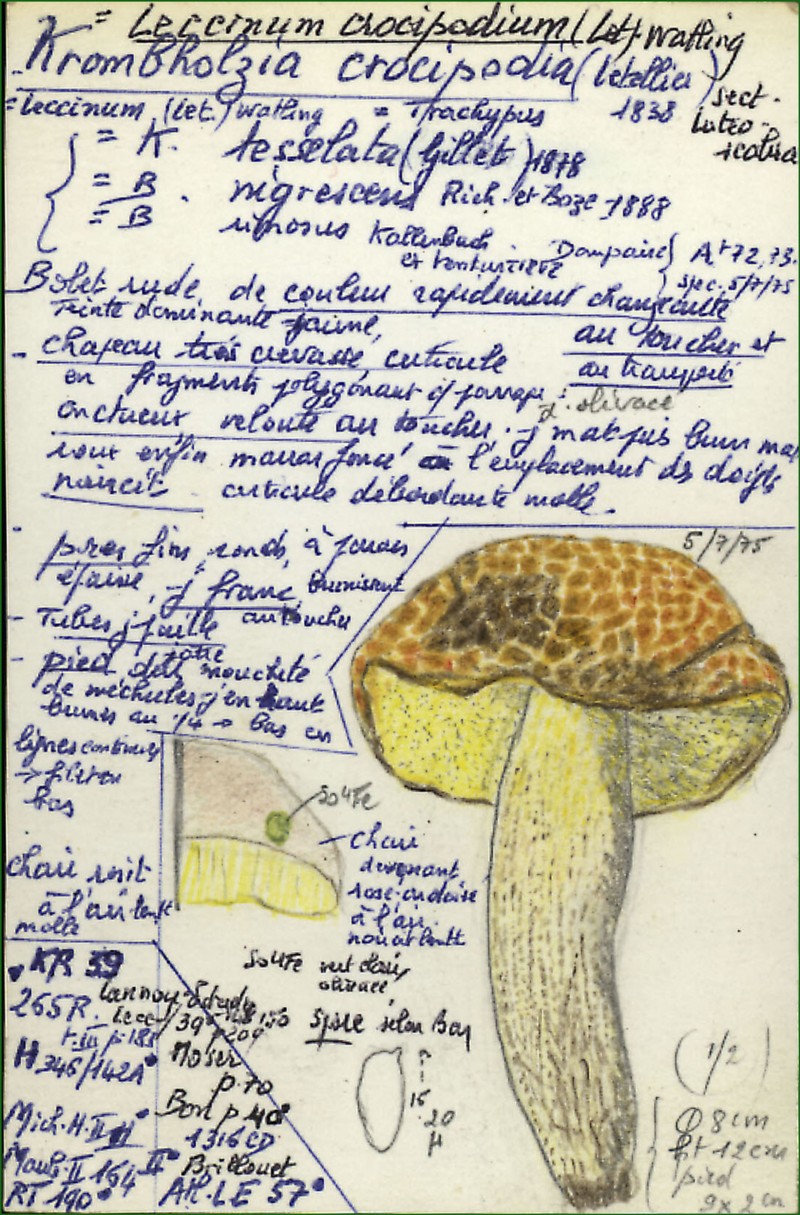 = Leccinum crocipodium (Let.) Watling
Krombholzia crocipodia (letellier)
= Leccinum (Let.) Watling = Trachypus 1838
sect.
Luteo-
scabra
= K. tesselata (Gillet) 1878
= B. nigrescens Rich. et Roze 1888
= B rimosus Kallenbach
et Venturiere
Dompaire
At 72,73.
spec. 5/7/75
Bolet rude, de couleur rapidement changeante
Teinte dominante jaune,
au toucher et
au transport
- chapeau très crevassé, cuticule
en fragments polygonaux
j. olivacé
onctueux velouté au toucher. j mat puis brun
roux enfin marron foncé à l'emplacement des doigts
noircit cuticule débordante molle.
5/7/75
- pores fins, ronds, à parois
épaisse, j franc brunissent
au toucher
- Tubes j paille
- pied moucheté
de méchules j en haut
brunis au 1/4 → bas en
lignes continues
→ filet en
bas
chair
à l'air
molle
SO4Fe
- chair
devenant
rose-ardoise
à l'air.
SO4Fe vert clair
olivacé
KR 39
265R. Lannoy-Estadès
Lecc.
t. III p. 185
H 346/142A
Mich. H. II
Maub. II 164
RT 190
Moser
p. 70
Bon p 40
1316 CD
Brillouet
Atl. LE 57
Spore selon Bon
15
20
µ
(1/2)
Φ 8 cm
ht 12 cm
pied
9 x 2 cm